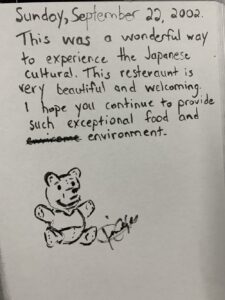 Sunday, September 22, 2002.
This was a wonderful way
to experience the Japanese
cultural. This resteraunt is
very beautiful and welcoming.
I hope you continue to provide
such exceptional food and
environment.